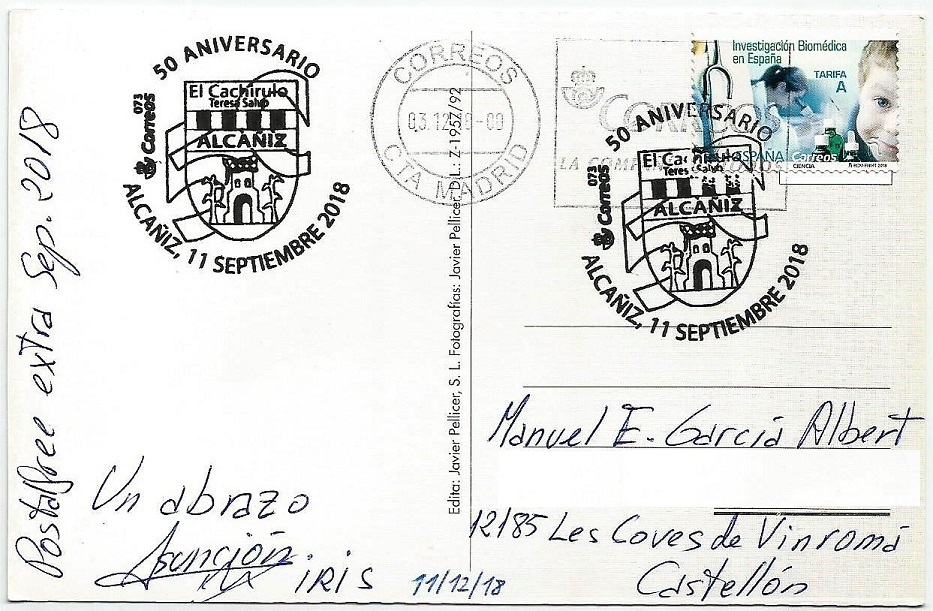 50 ANIVERSARIO
El Cachirulo
Teresa Salvo
ALCAÑIZ
073
Correos
ALCAÑIZ, 11 SEPTIEMBRE 2018
CORREOS
03.12
-00
CTA MADRID
CORREOS
LA COMP
Investigación Biomédica
en España
TARIFA
A
ESPAÑA
Correos
CIENCIA
50 ANIVERSARIO
El Cachirulo
Teresa Salvo
ALCAÑIZ
073
Correos
ALCAÑIZ, 11 SEPTIEMBRE 2018
Postalfree extra Sep. 2018
Un abrazo
Asunción.
IRIS
11/12/18
Edita: Javier Pellicer, S. L. Fotografías: Javier Pellicer, D.L. Z-1957/92
Manuel E. García Albert
12185 Les Coves de Vinromá
Castellón